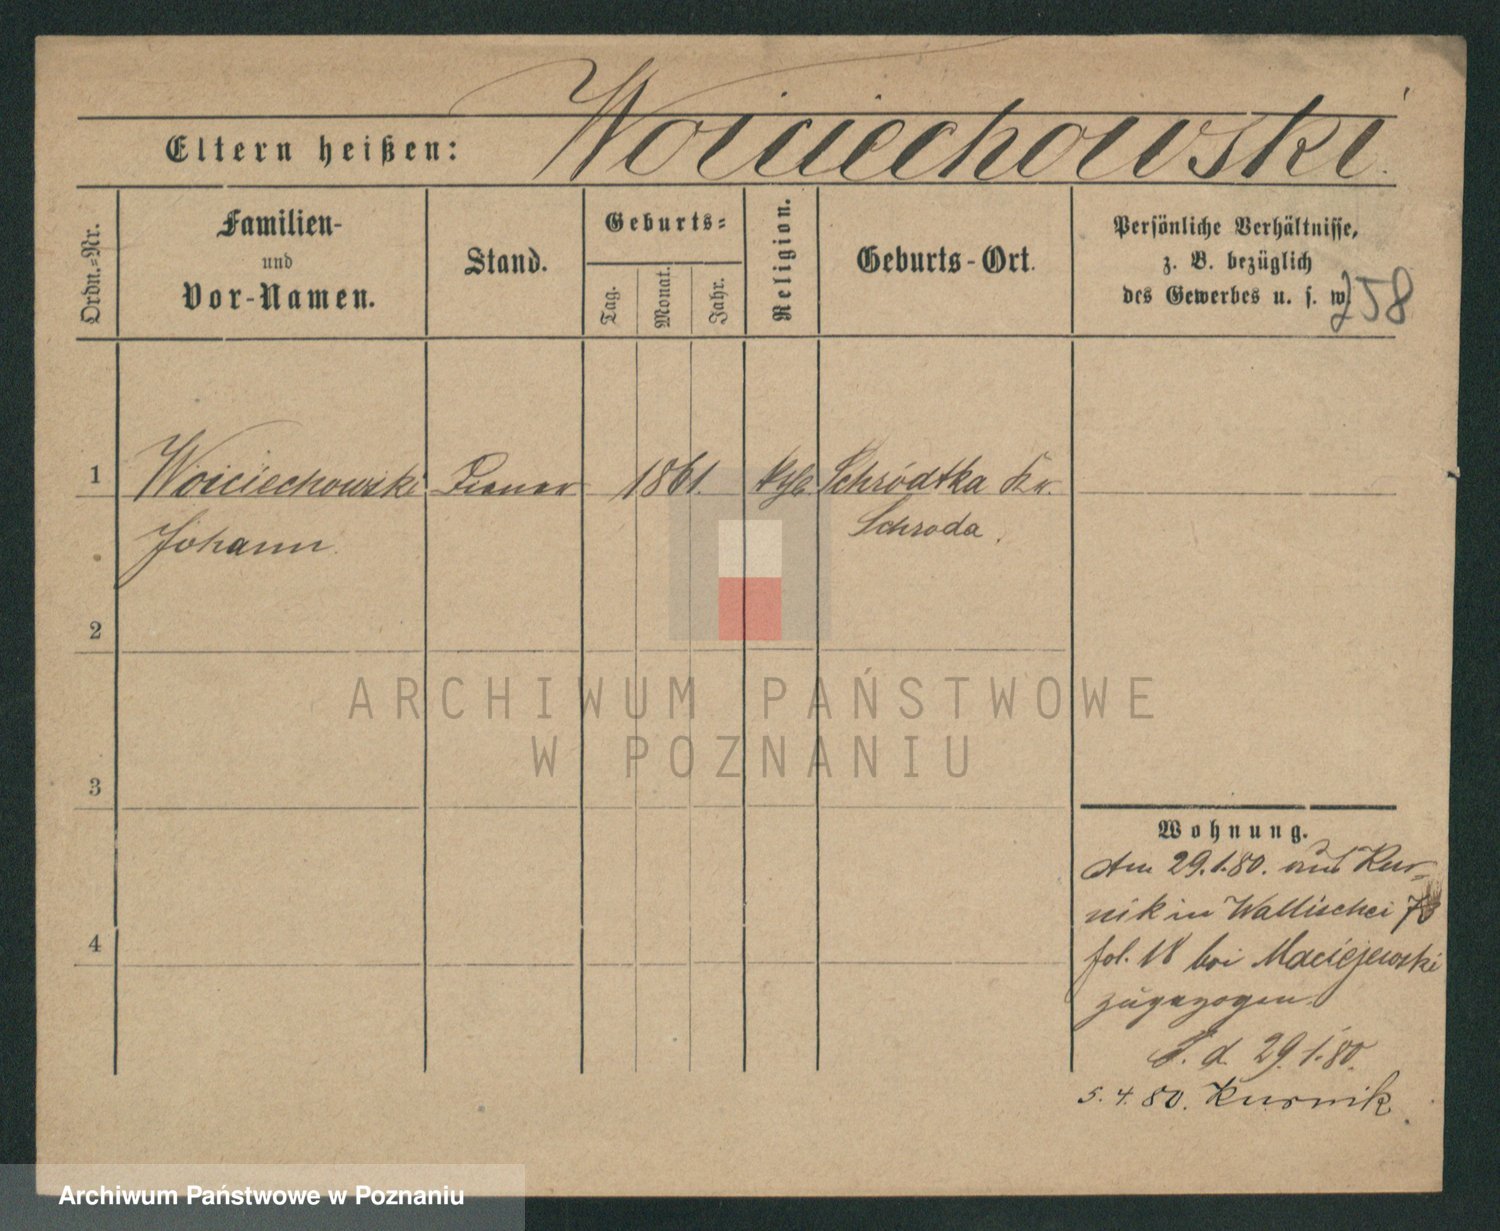 Woiciechowski.
Eltern heißen:
Ordn.-Nr.
Familien-
und
Vor-Namen.
Stand.
Geburts-
Tag.
Monat.
Jahr.
Religion.
Geburts-Ort.
Persönliche Verhältnisse,
z. B. bezüglich
des Gewerbes u. s. w.
258
1
Woiciechowski
Johann.
Diener
1861.
Schrodtka Kr.
Schroda.
2
3
4
ARCHIWUM PAŃSTWOWE
W POZNANIU
Wohnung.
Am 29.1.80. aus Kur-
nik in Wallischei 73
fol. 18 bei Maciejewski
zugezogen
d. 29.1.80.
5.4.80. Kurnik.
Archiwum Państwowe w Poznaniu